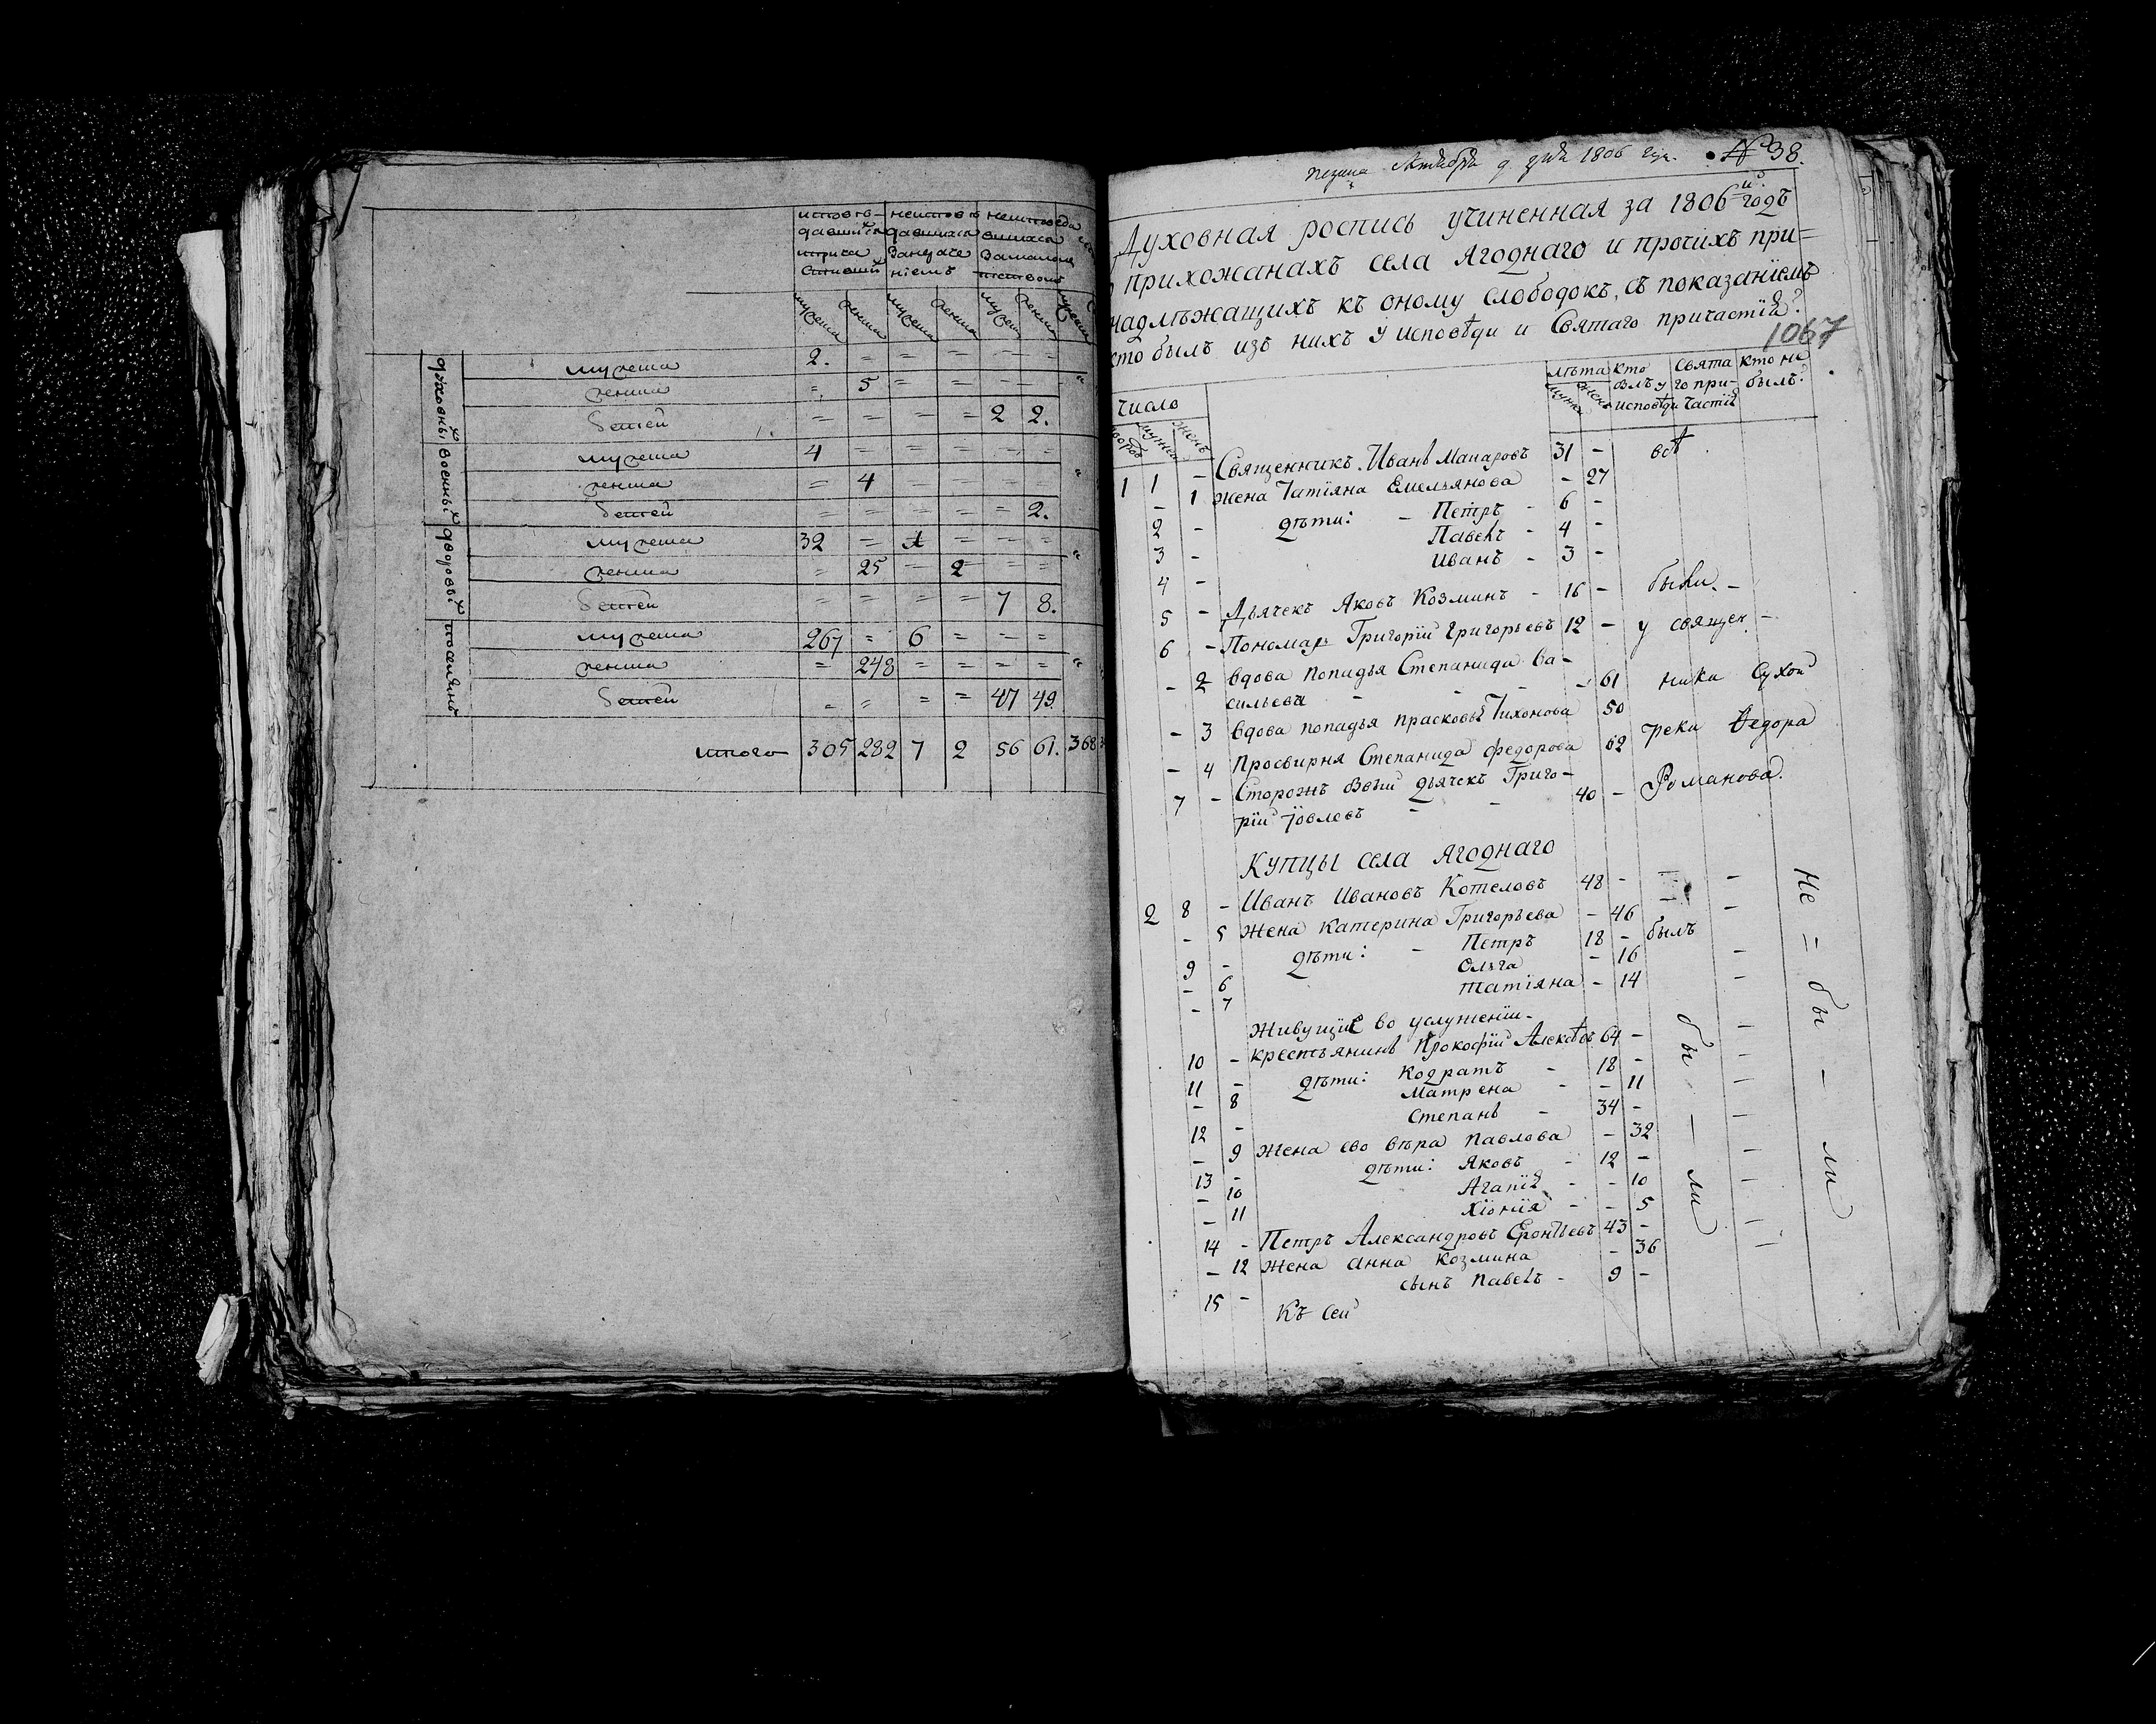 исповѣ- неисповѣ неисповѣда
давшихся давшихся вшихся
прича за нераче за малолѣ
стившихся ніемъ тствомъ
мужеска женска мужеска женска мужеска женска мужеска
духовныхъ
мужеска 2. = = = = =
женска = 5 = = = =
детей = = = = 2 2.
военныхъ
мужеска 4 = = = = =
женска = 4 = = = =
детей = = = = = 2.
дворовыхъ
мужеска 32 = 1 = = =
женска = 25 = 2 = =
детей = = = = 7 8.
поселянъ
мужеска 267 = 6 = = =
женска = 248 = = = =
детей = = = = 47 49.
итого 305 282 7 2 56 61. 368
Октября 9 дня 1806 года. № 38.
Духовная роспись учиненная за 1806й годъ
прихожанахъ села Ягоднаго и прочихъ при=
надлѣжащихъ къ оному слободокъ, съ показаніемъ
кто былъ изъ нихъ у исповѣди и Святаго причастія?
1067
Число лѣта кто свята кто не
дворовъ мужска женъ мужска женска былъ у го при- былъ?
исповѣди частія
1 1 - Священникъ Иванъ Макаровъ 31 - всѣ
- 1 жена Татіяна Емельянова - 27
2 - дѣти: - Петръ - 6 -
3 - Павелъ - 4 -
4 - Иванъ - 3 -
5 - Дьячекъ Яковъ Козминъ - 16 - были. -
6 - Пономарь Григорій Григорьевъ 12 - у священ -
- 2 вдова попадья Степанида Ва-
сильева - - - - 61 ника Сухой
- 3 вдова попадья Прасковья Тихонова 50
- 4 Просвирня Степанида Федорова 62 реки Ѳедора
7 - Сторожъ бвшій дьячекъ Григо-
рій Іовлевъ - - 40 - Романова.
Купцы села Ягоднаго
2 8 - Иванъ Ивановъ Котеловъ 48 - -
- 5 Жена Катерина Григорьева - 46 -
9 - дѣти: - Петръ 18 - былъ
- 6 Ольга - 16 -
- 7 Татіяна - 14 -
Не = бы - ли
Живущіе во услуженіи -
10 - крестьянинъ Прокофій Алексѣевъ 64 - -
11 - дѣти: Кодратъ - 18 - -
- 8 Матрена - - 11 -
12 - Степанъ - 34 - -
- 9 Жена ево Вѣра Павлова - 32
13 - дѣти: Яковъ - 12 - -
- 10 Агапія - - 10 -
- 11 Хіонія - - 5 -
бы - ли
14 - Петръ Александровъ Еронтьевъ 43 - -
- 12 Жена Анна Козмина - 36
15 - сынъ Павелъ - 9 -
Къ сей